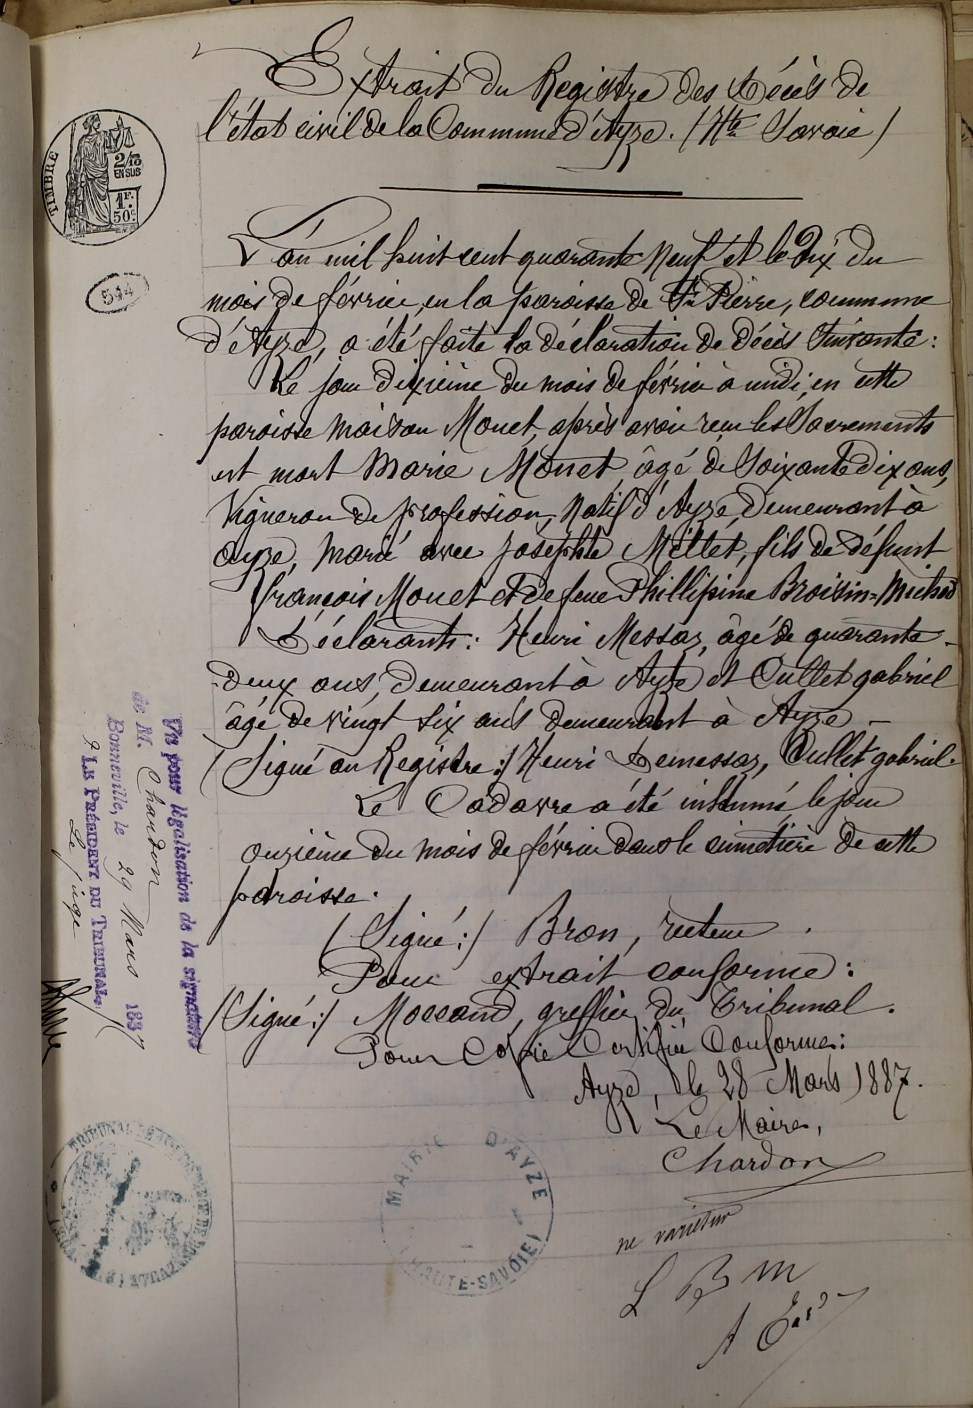 Extrait du Registre des Décès de
l'état civil de la Commune d'Ayze. (Hte Savoie)
TIMBRE
2/10
EN SUS
1F.
50c
544
L'an mil huit cent quarante Neuf et le Dix du
mois de février, en la paroisse de St Pierre, commune
d'Ayze, a été faite la déclaration de Décès Suivante :
Le jour dixième du mois de février à midi, en cette
paroisse maison Mouet, après avoir reçu les Sacrements
est mort Marie Mouet, âgé de Soixante dix ans,
Vigneron de profession, Natif d'Ayze, Demeurant à
Ayze, marié avec Josephte Millet, fils de défunt
françois Mouet et de feue Phillipine Broisin=Michod
Déclarants : Henri Messaz, âgé de quarante
deux ans, Demeurant à Ayze et Cullet gabriel
âgé de vingt six ans demeurant à Ayze -
(Signé au Registre :) Henri Demessaz, Cullet gabriel.
Le Cadavre a été inhumé le jour
onzième du mois de février dans le cimetière de cette
paroisse.
(Signé :) Bron, recteur.
Pour extrait conforme :
(Signé :) Moccand, greffier du Tribunal.
Pour Copie Certifiée Conforme :
Ayze, le 28 Mars 1887.
Le Maire,
Chardon
MAIRIE D'AYZE
(HAUTE-SAVOIE)
ne varietur
L B M
Vu pour légalisation de la signature
de M. Chardon
Bonneville, le 29 Mars 1887
P LE PRÉSIDENT DU TRIBUNAL,
Le juge